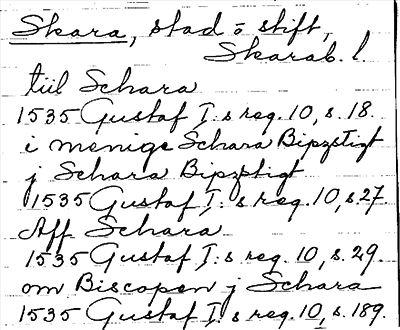 Skara, stad o stift,
Skarab. l.
tiil Schara
1535 Gustaf I:s reg. 10, s. 18.
i menige Schara Bipzstigt
j Schara Bipzptigt
1535 Gustaf I:s reg. 10, s. 27
Aff Schara
1535 Gustaf I:s reg. 10, s. 29.
om Biscopen j Schara
1535 Gustaf I:s reg. 10, s. 189.